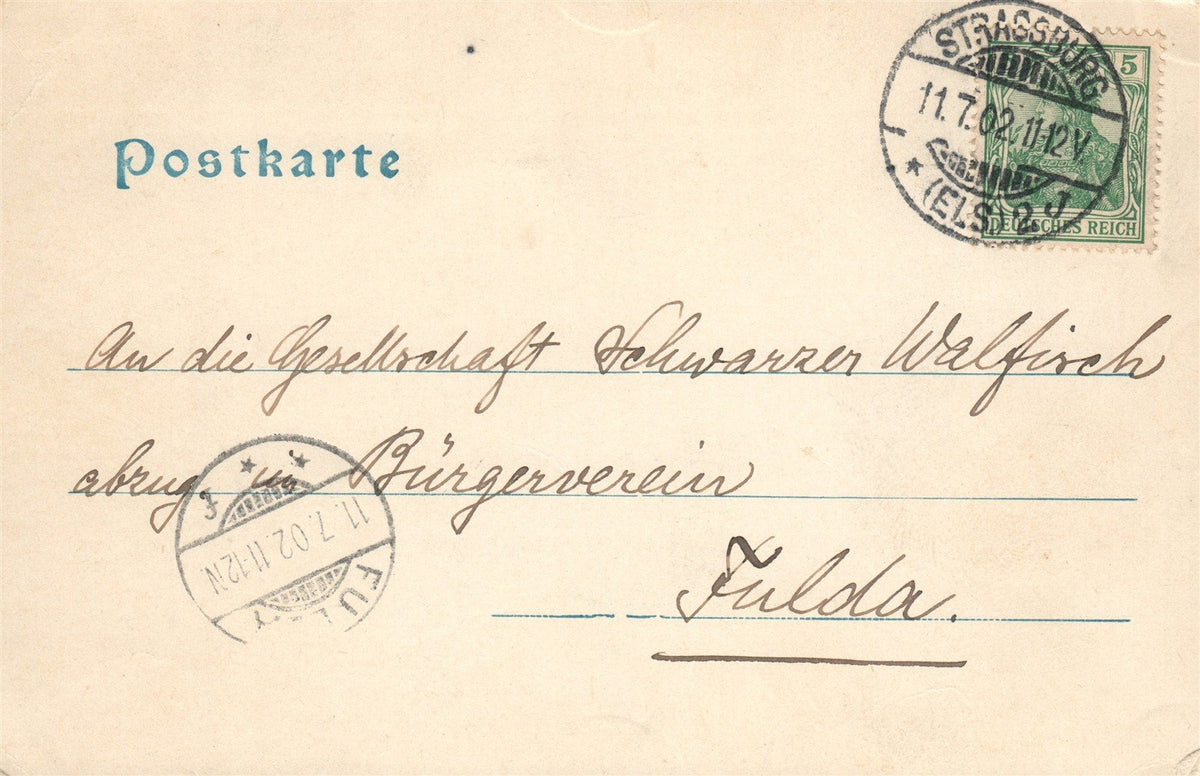 Postkarte
STRASSBURG
11.7.02.11-12V
* (ELS) 2 J
5
DEUTSCHES REICH
An die Gesellschaft Schwarzer Walfisch
abzug. im Bürgerverein
Fulda.
11.7.02.11-12N